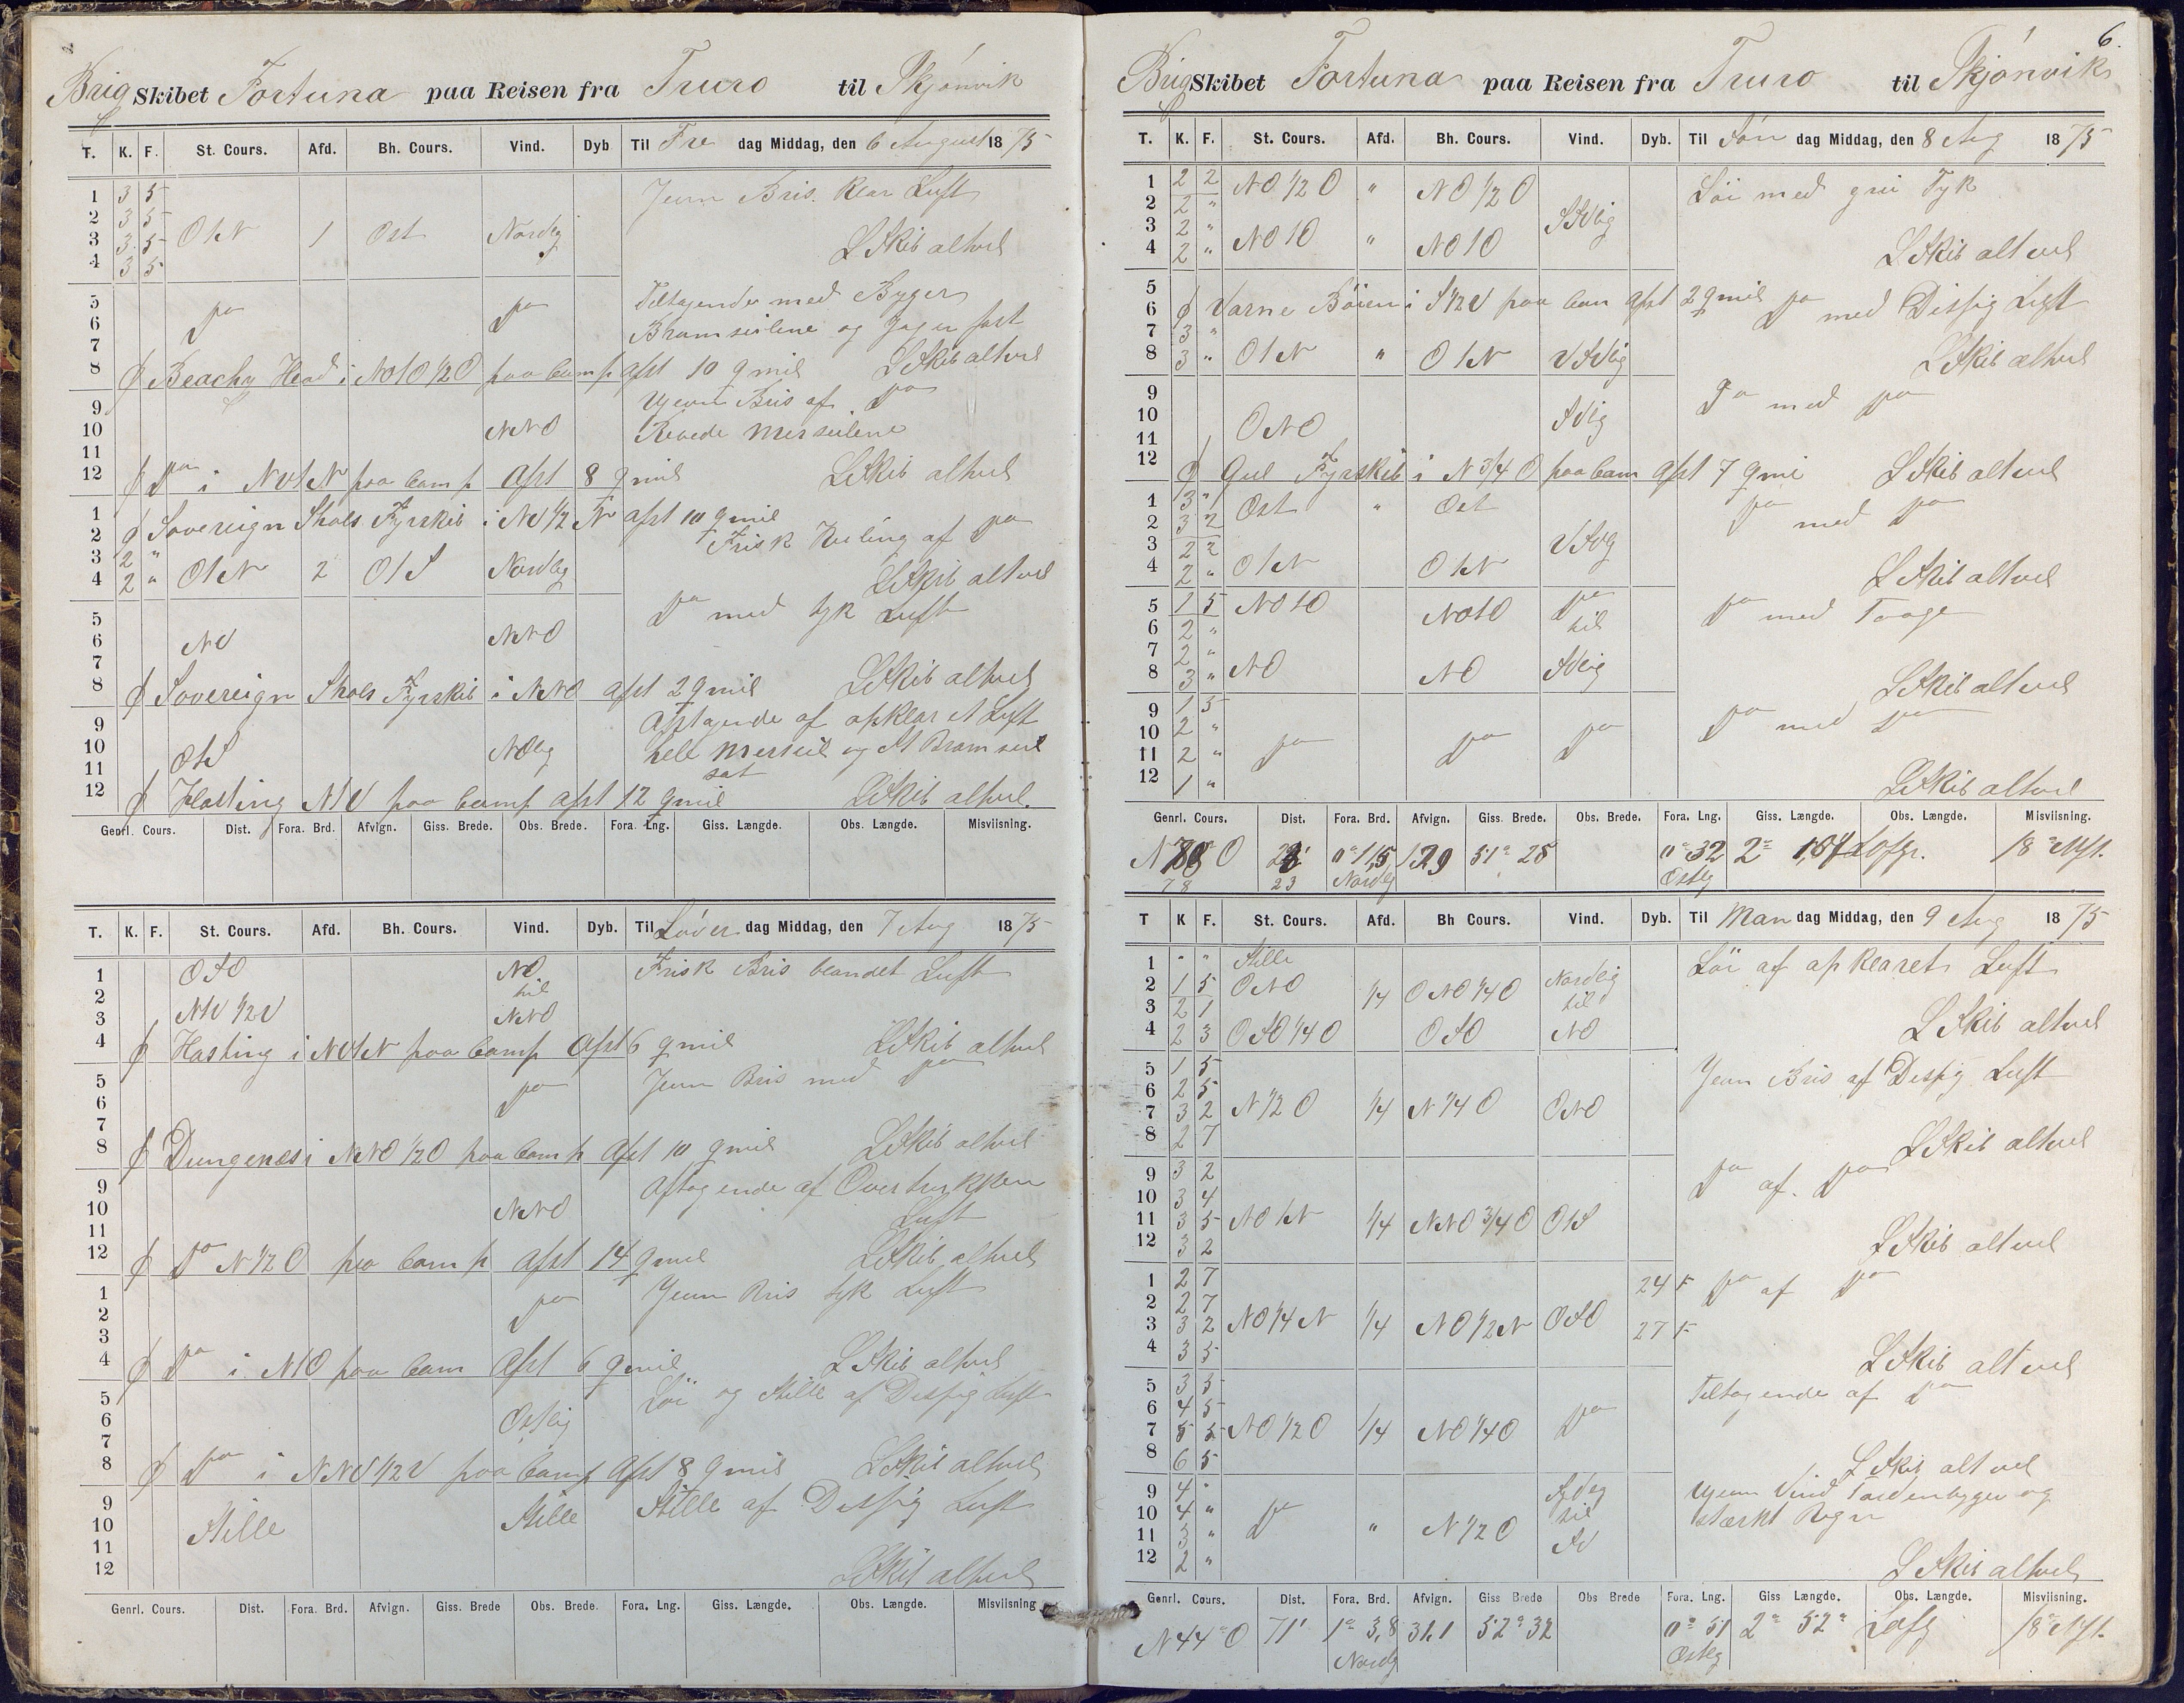 Brig Skibet Fortuna paa Reisen fra Truro til Skjönvik
T. K. F. St. Cours. Afd. Bh. Cours. Vind. Dyb Til Fre dag Middag, den 6 August 1875
1 3 5 Jevn Bris. Klar Luft
2 3 5
3 3 5 OtN 1 Ost Nordlig
4 3 5 L Skib altvel
5 Do Do Tiltagende med Byger
6 Bramseilene og Jager fast
7
8 Beachy Head i NOtO 1/2 O paa Comp afst 10 qmil L Skib altvel
9 Ujevn Bris af Do
10 NNO Revede Merseilene
11
12 Do i NVtN paa Comp Afst 8 qmil L Skib altvel
1 Sovereign Shols Fyrskib i NV 1/2 N afst 10 qmil
2 Frisk Kuling af Do
3 2 "
4 2 " OtN 2 OtS Nordlig L Skib altvel
5 Do med tyk Luft
6 NV NNO
7
8 Sovereign Shols Fyrskib i NNO afst 2 qmil L Skib altvel
9 Aftagende af opklaret Luft
10 OtS NOlig hele Merseil og St Bramseil
11 sat
12 Hasting NtV paa Comp afst 12 qmil L Skib altvel.
Genrl. Cours. Dist. Fora. Brd. Afvign. Giss. Brede. Obs. Brede. Fora. Lng. Giss. Længde. Obs. Længde. Misviisning.
T. K. F. St. Cours. Afd. Bh. Cours. Vind. Dyb. Til Löver dag Middag, den 7 Aug 1875
1 OSO NO Frisk Bris blandet Luft
2 til
3 NtV 1/2 V NNO
4 Hasting i NVtN paa Comp Afst 6 qmil L Skib altvel
5 Do Jevn Bris med Do
6
7
8 Dungenæs i NNO 1/2 O paa Comp Afst 10 qmil L Skib altvel
9 Aftagende af Overtrukken
10 NNO Luft
11
12 Do N 1/2 O paa Comp afst 14 qmil L Skib altvel
1 Do Jevn Bris tyk Luft
2
3
4 Do i NtO paa Com Afst 6 qmil L Skib altvel
5 Löi og Stille af Disfig Luft
6 Ostlig
7
8 Do i NNV 1/2 V paa Comp Afst 8 qmil L Skib altvel
9 Stille Stille Stille af Disfig Luft
10
11
12 L Skib altvel
Genrl. Cours. Dist. Fora. Brd. Afvign. Giss. Brede Obs. Brede. Fora. Lng. Giss. Længde. Obs. Længde. Misviisning
6.
Brig Skibet Fortuna paa Reisen fra Truro til Skjönvik
T. K. F. St. Cours. Afd. Bh. Cours. Vind. Dyb. Til Sön dag Middag, den 8 Aug 1875
1 2 2 NO 1/2 O " NO 1/2 O Löi med Tyk
2 2 " SVlig
3 2 "
4 2 " NOtO " NOtO L Skib altvel
5
6 Varne Böien i S 1/2 V paa Com Afst 2 qmil Do med Disfig Luft
7 3 "
8 3 " OtN " OtN VSVlig L Skib altvel
9 Do med Do
10 ONO SVlig
11
12 Gul Fyrskib i N 3/4 O paa Com Afst 7 qmi L Skib altvel
1 3 " Ost " Ost Do med Do
2 3 2
3 2 2 VSVlig
4 2 " OtN OtN L Skib altvel
5 1 5 NOtO NOtO Do Do med Taage
6 2 " til
7 2 "
8 3 " NO NO SVlig L Skib altvel
9 1 5 Do med Do
10 2 "
11 2 " Do Do Do
12 1 " L Skib altvel
Genrl. Cours. Dist. Fora. Brd. Afvign. Giss. Brede. Obs. Brede. Fora. Lng. Giss. Længde. Obs. Længde. Misviisning.
N 78 O 23 0° 11,5 Nordlig 129 51° 28 0° 32 Ostlig 2° 1,04 18° Vst.
78 23
T K F. St. Cours. Afd. Bh Cours. Vind. Dyb. Til Man dag Middag, den 9 Aug 1875
1 " " Stille Löi af opklaret Luft
2 1 5 ONO 1/4 ONO 1/4 O Nordlig
3 2 1 til
4 2 3 OSO 1/4 O OSO NO L Skib altvel
5 1 5 Jevn Bris af Disfig Luft
6 2 5
7 3 2 N 1/2 O 1/4 N 1/4 O ONO
8 2 7 L Skib altvel
9 3 2 Do af Do
10 3 4
11 3 5 NOtN 1/4 NNO 3/4 O OtS
12 3 2 L Skib altvel
1 2 7 24 F Do af Do
2 2 7
3 3 2 NO 1/4 N 1/4 NO 1/2 N OSO 27 F
4 3 5 L Skib altvel
5 3 5 Tiltagende af Do
6 4 5
7 5 5 NO 1/2 O 1/4 NO 1/4 O Do
8 6 5 L Skib altvel
9 4 " Sydlig Ujevn Vind Tordenbyger og
10 4 " Do " N 1/2 O til stærkt Regn
11 3 " SV
12 2 " L Skib altvel
Genrl. Cours. Dist. Fora. Brd. Afvign. Giss Brede Obs Brede Fora. Lng. Giss Længde. Obs. Længde. Misviisning.
N 44° O 71' 1° 3,8 Nordlig 31,1 52° 32 0° 51 Ostlig 2° 52" 18° Vst.